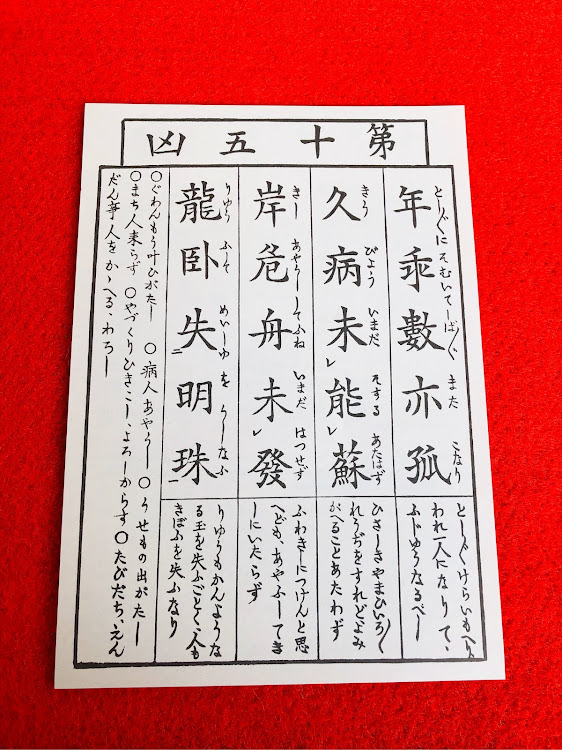 第十五凶
としぐ〳〵に そむいてしば〳〵 また こなり
年乖數亦孤
とし〴〵けらいもへり、
われ一人になりて、
ふじゆうなるべし
きう びよう いまだ そする あたはず
久病未レ能レ蘇
ひさしきやまひいろ〳〵
れうぢをすれどよみ
がへることあたわず
きし あやうしてふね いまだ はつせず
岸危舟未レ發
ふわきしにつけんと思
へども、あやふしてき
しにいたらず
りゆう ふして めいしゆ を うしなふ
龍臥失二明珠一
りゆうもかんような
る玉を失ふごとく、人も
きぼふを失ふなり
○ぐわんもう叶ひがたし ○病人あやうし ○うせもの出がたし
○まち人来らず ○やづくりひきこし、よろしからす ○たびだち、えん
だん等人をかゝへる、わろし